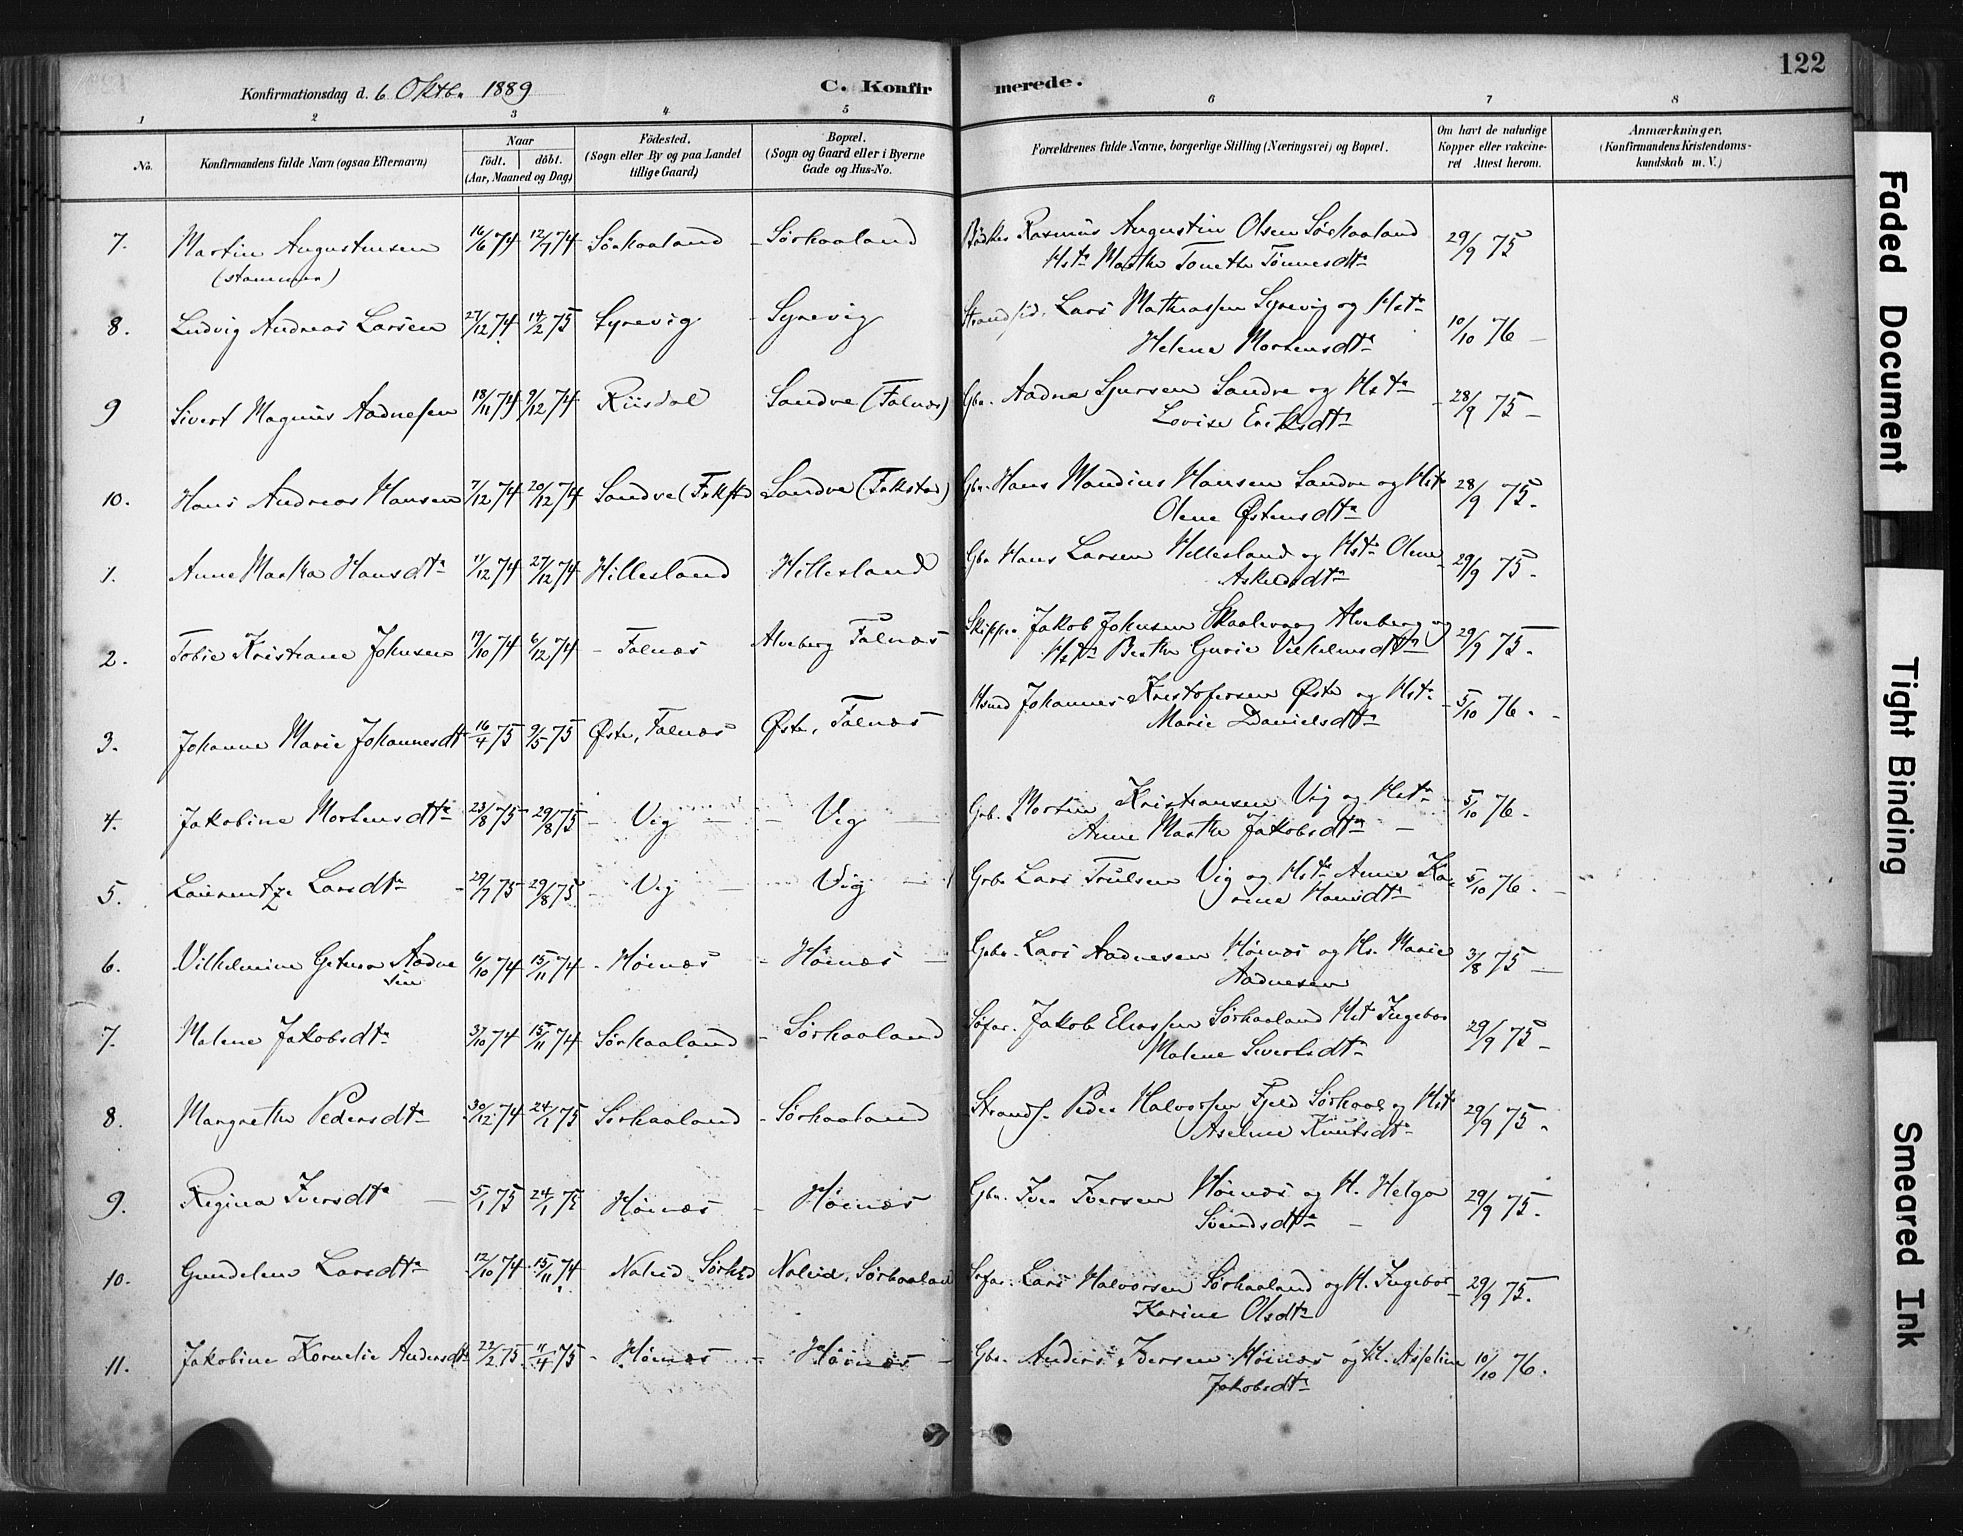 122
Konfirmationsdag d. 6 Oktb. 1889 C. Konfirmerede.
1 2 3 4 5 6 7 8
No. Konfirmandens fulde Navn (ogsaa Efternavn) Naar födt. döbt. (Aar, Maaned og Dag) Födested. (Sogn eller By og paa Landet tillige Gaard) Bopæl. (Sogn og Gaard eller i Byerne Gade og Hus-No. Forældrenes fulde Navne, borgerlige Stilling (Næringsvei) og Bopæl. Om havt de naturlige Kopper eller vakcineret Attest herom. Anmærkninger. (Konfirmandens Kristendomskundskab m. V.)
7. Martin Augustensen 16/6 74 12/7 74 Sørhaaland - Sørhaaland Bødker Rasmus Augustin Olsen Sørhaaland 29/9 75
(stammer) Hst. Marthe Tonette Tönnesdtr
8. Ludvig Andreas Larsen 27/12 74 14/2 75 Syrevig - Syrevig Strandsid. Lars Mathiassen Syrevig og Hst. 10/10 76
Helene Mortensdtr
9 Sivert Magnus Aadnesen 18/11 74 9/12 74 Riisdal Sandve (Falnæs) Gbr. Aadne Sjursen Sandve og Hst. 28/9 75
Lovise Eriksdtr
10. Hans Andreas Hansen 7/12 74 20/12 74 Sandve (Falnæs) Gbr. Hans Mandius Hansen Sandve og Hst. 28/9 75.
Olene Østensdtr
1. Anne Marta Hansdtr 11/12 74 27/12 74 Hillesland Hillesland Gbr Hans Larsen Hillesland og Hst. Olene 29/9 75.
Askildsdtr
2. Tobie Kristiane Johnsen 19/10 74 6/12 74 - Falnæs Alveberg Falnæs Skipper Jakob Johnsen Skaalevaag Alveberg og 29/9 75.
Hst. Berthe Gurie Vilhelmsdtr
3. Johanne Marie Johannesdtr 16/4 75 9/5 75 Østr, Falnæs Østr, Falnæs Hsmd Johannes Kristofersen Østr og Hst. 5/10 76.
Marie Danielsdtr
4. Jakobine Mortensdtr 23/8 75 29/8 75 - Vig - Vig Grb. Morten Kristiansen Vig og Hst. 5/10 76.
Anne Marthe Jakobsdtr
5. Laurentze Larsdtr 29/7 75 29/8 75 - Vig - Vig Grb. Lars Trulsen Vig og Hst. Anne Ka- 5/10 76.
rine Hansdtr
6. Vilhelmine Getura Aadne 6/10 74 15/11 74 - Høinæs - Høinæs Gbr. Lars Aadnesen Høinæs og Hs. Marie 3/8 75
sen Aadnesen
7. Malene Jakobsdtr 31/10 74 15/11 74 Sørhaaland - Sørhaaland Søfar. Jakob Eliassen Sørhaaland Hst Ingebor 29/9 75
Malene Sivertsdtr
8. Margrethe Pedersdtr 30/12 74 24/1 75 Sørhaaland - Sørhaaland Strands. Peder Halvorsen Fjeld Sørhaal og Hst 29/9 75.
Aseline Knutsdtr
9. Regina Iversdtr 5/1 75 24/1 75 Høinæs - Høinæs Gbr. Iver Iversen Høinæs og H. Helga 29/9 75.
Svendsdtr
10. Gundelene Larsdtr 12/10 74 15/11 74 Naleid, Sørhld Naleid, Sørhaaland Søfar. Lars Halvorsen Sørhaaland og H. Ingebor 29/9 75.
Karine Olsdtr
11. Jakobine Kornelie Andersdtr 22/2 75. 11/4 75 - Høinæs - Høinæs Gbr. Anders Iversen Høinæs og H. Asseline 10/10 76.
Jakobsdtr
Faded Document
Tight Binding
Smeared Ink